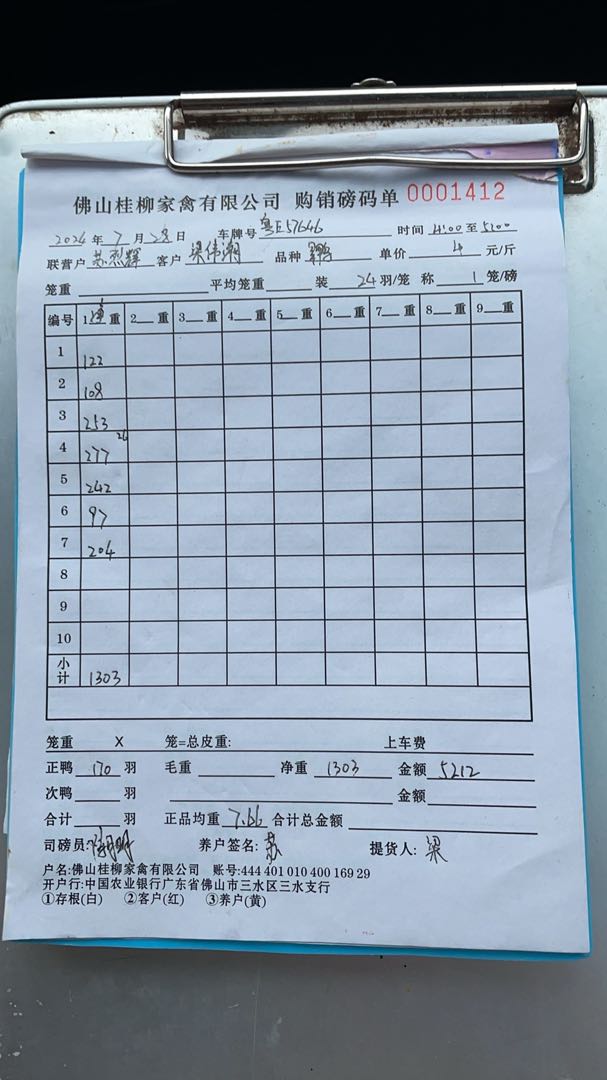 佛山桂柳家禽有限公司 购销磅码单 0001412
2024 年 7 月 28 日 车牌号 粤E57646 时间 4:00 至 5:00
联营户 苏烈辉 客户 梁伟潮 品种 鸭 单价 4 元/斤
笼重 平均笼重 装 24 羽/笼 称 1 笼/磅
编号 1净重 2 重 3 重 4 重 5 重 6 重 7 重 8 重 9 重
1 122
2 108
3 253
4 277 26
5 242
6 97
7 204
8
9
10
小计 1303
笼重 X 笼=总皮重: 上车费
正鸭 170 羽 毛重 净重 1303 金额 5212
次鸭 羽 金额
合计 羽 正品均重 7.66 合计总金额
司磅员: 养户签名: 苏 提货人: 梁
户名:佛山桂柳家禽有限公司 账号:444 401 010 400 169 29
开户行:中国农业银行广东省佛山市三水区三水支行
①存根(白) ②客户(红) ③养户(黄)